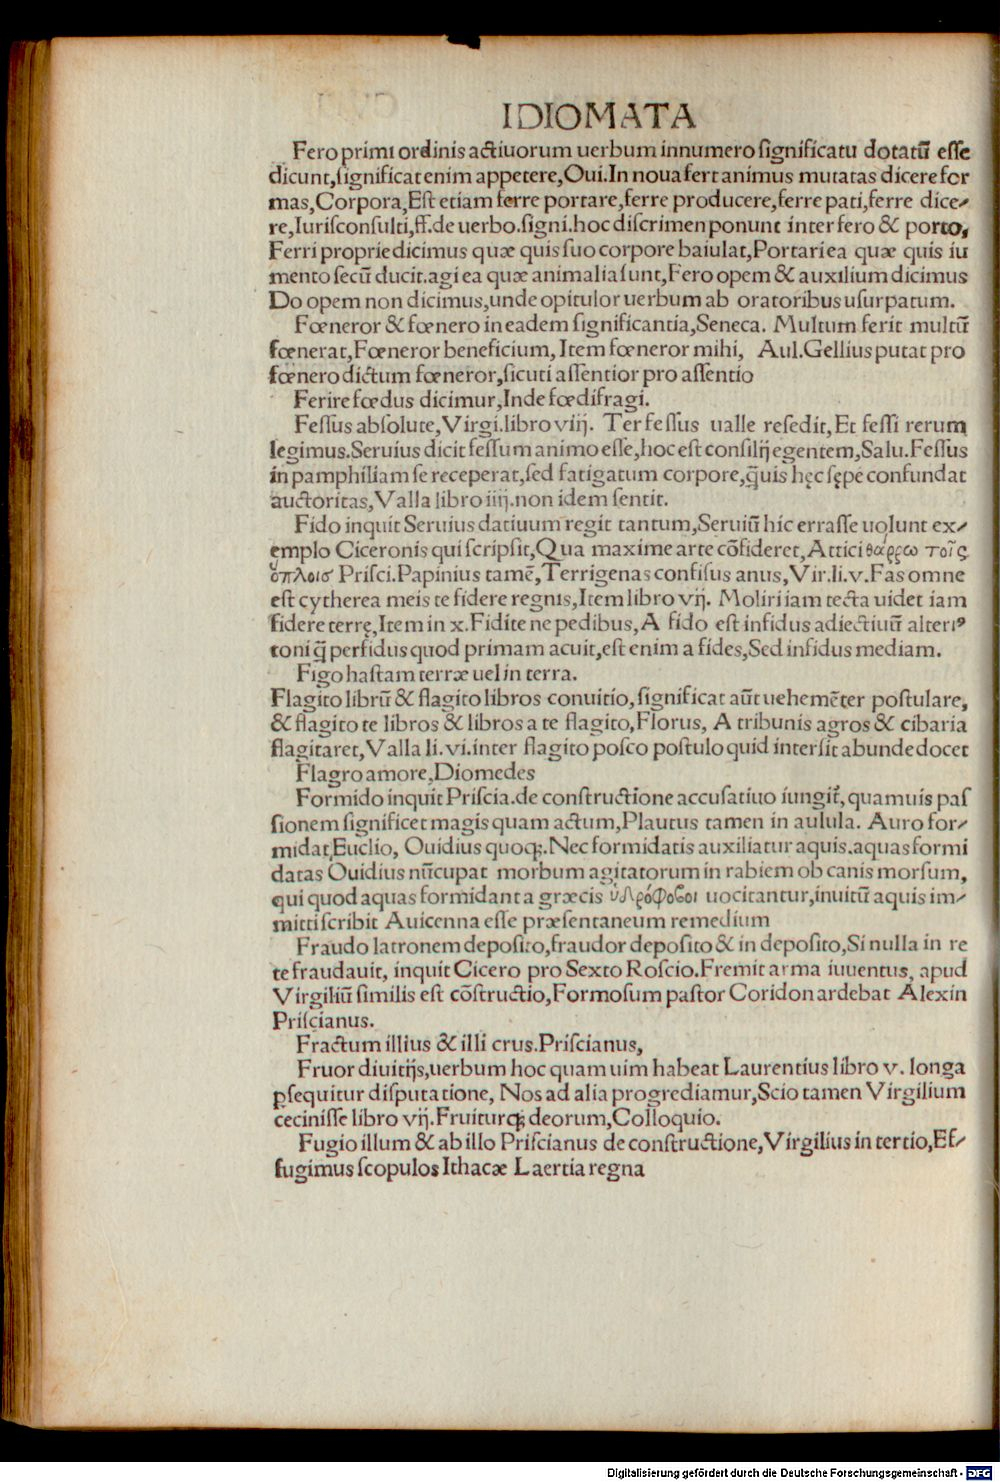 IDIOMATA
Fero primi ordinis actiuorum uerbum innumero ſignificatu dotatū eſſe
dicunt,ſignificat enim appetere,Oui.In noua fert animus mutatas dicere for
mas,Corpora,Eſt etiam ferre portare,ferre producere,ferre pati,ferre dice⸗
re,Iuriſconſulti,ff.de uerbo.ſigni.hoc diſcrimen ponunt inter fero & porto,
Ferri proprie dicimus quæ quis ſuo corpore baiulat,Portari ea quæ quis iu
mento ſecū ducit.agi ea quæ animalia ſunt,Fero opem & auxilium dicimus
Do opem non dicimus,unde opitulor uerbum ab oratoribus uſurpatum.
Fœneror & fœnero in eadem ſignificantia,Seneca. Multum ferit multū
fœnerat,Fœneror beneficium, Item fœneror mihi, Aul.Gellius putat pro
fœnero dictum fœneror,ſicuti aſſentior pro aſſentio
Ferire fœdus dicimur,Inde fœdifragi.
Feſſus abſolute,Virgi.libro viij. Ter feſſus ualle reſedit,Et feſſi rerum
legimus.Seruius dicit feſſum animo eſſe,hoc eſt conſilij egentem,Salu.Feſſus
in pamphiliam ſe receperat,ſed fatigatum corpore,q̄uis hęc ſępe confundat
auctoritas,Valla libro iiij.non idem ſentit.
Fido inquit Seruius datiuum regit tantum,Seruiū hic erraſſe uolunt ex⸗
emplo Ciceronis qui ſcripſit,Qua maxime arte cōfideret,Attici θάρρω τοῖς
ὅπλοισ Priſci.Papinius tamē,Terrigenas confiſus anus,Vir.li.v.Fas omne
eſt cytherea meis te fidere regnis,Item libro vij. Moliri iam tecta uidet iam
fidere terrę,Item in x.Fidite ne pedibus,A fido eſt infidus adiectiuū alteriꝰ
toni q̄ perfidus quod primam acuit,eſt enim a fides,Sed infidus mediam.
Figo haſtam terræ uel in terra.
Flagito librū & flagito libros conuitio,ſignificat aūt uehemēter poſtulare,
& flagito te libros & libros a te flagito,Florus, A tribunis agros & cibaria
flagitaret,Valla li.vi.inter flagito poſco poſtulo quid interſit abunde docet
Flagro amore,Diomedes
Formido inquit Priſcia.de conſtructione accuſatiuo iungit᷑,quamuis paſ
ſionem ſignificet magis quam actum,Plautus tamen in aulula. Auro for⸗
midat,Euclio, Ouidius quoq;.Nec formidatis auxiliatur aquis.aquas formi
datas Ouidius nūcupat morbum agitatorum in rabiem ob canis morſum,
qui quod aquas formidant a græcis ὑδρόφοβοι uocitantur,inuitū aquis im⸗
mitti ſcribit Auicenna eſſe præſentaneum remedium
Fraudo latronem depoſito,fraudor depoſito & in depoſito,Si nulla in re
te fraudauit, inquit Cicero pro Sexto Roſcio.Fremit arma iuuentus, apud
Virgiliū ſimilis eſt cōſtructio,Formoſum paſtor Coridon ardebat Alexin
Priſcianus.
Fractum illius & illi crus.Priſcianus,
Fruor diuitijs,uerbum hoc quam uim habeat Laurentius libro v. longa
ꝑſequitur diſputatione, Nos ad alia progrediamur,Scio tamen Virgilium
ceciniſſe libro vij.Fruiturq; deorum,Colloquio.
Fugio illum & ab illo Priſcianus de conſtructione,Virgilius in tertio,Ef⸗
fugimus ſcopulos Ithacæ Laertia regna
Digitalisierung gefördert durch die Deutsche Forschungsgemeinschaft - DFG